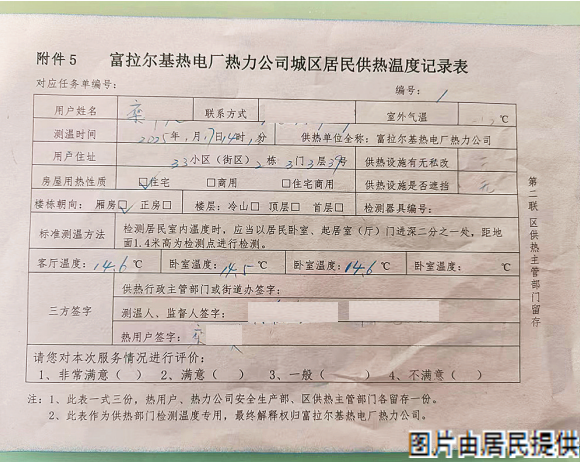 附件5 富拉尔基热电厂热力公司城区居民供热温度记录表
对应任务单编号： 编号：1
用户姓名 栾 联系方式 室外气温 ℃
测温时间 2025年1月17日14时 分 供热单位全称：富拉尔基热电厂热力公司
用户住址 33小区（街区）2栋3门3层 号 供热设施有无私改 无
房屋用热性质 ☑住宅 □商用 □住宅商用 供热设施是否遮挡 无
楼栋朝向：厢房☑ 正房□ 楼层：冷山□ 顶层□ 首层□ 检测器具编号：
标准测温方法 检测居民室内温度时，应当以居民卧室、起居室（厅）门进深二分之一处，距地
面1.4米高为检测点进行检测。
客厅温度：14.6℃ 卧室温度：14.5℃ 卧室温度：14.6℃ 卧室温度： ℃
三方签字 供热行政主管部门或街道办签字：
测温人、监督人签字：
热用户签字：栾
请您对本次服务情况进行评价：
1、非常满意（ ） 2、满意（ ） 3、一般（ ） 4、不满意（ ）
注：1、此表一式三份，热用户、热力公司安全生产部、区供热主管部门各留存一份。
2、此表作为供热部门检测温度专用，最终解释权归富拉尔基热电厂热力公司。
第二联 区供热主管部门留存
图片由居民提供